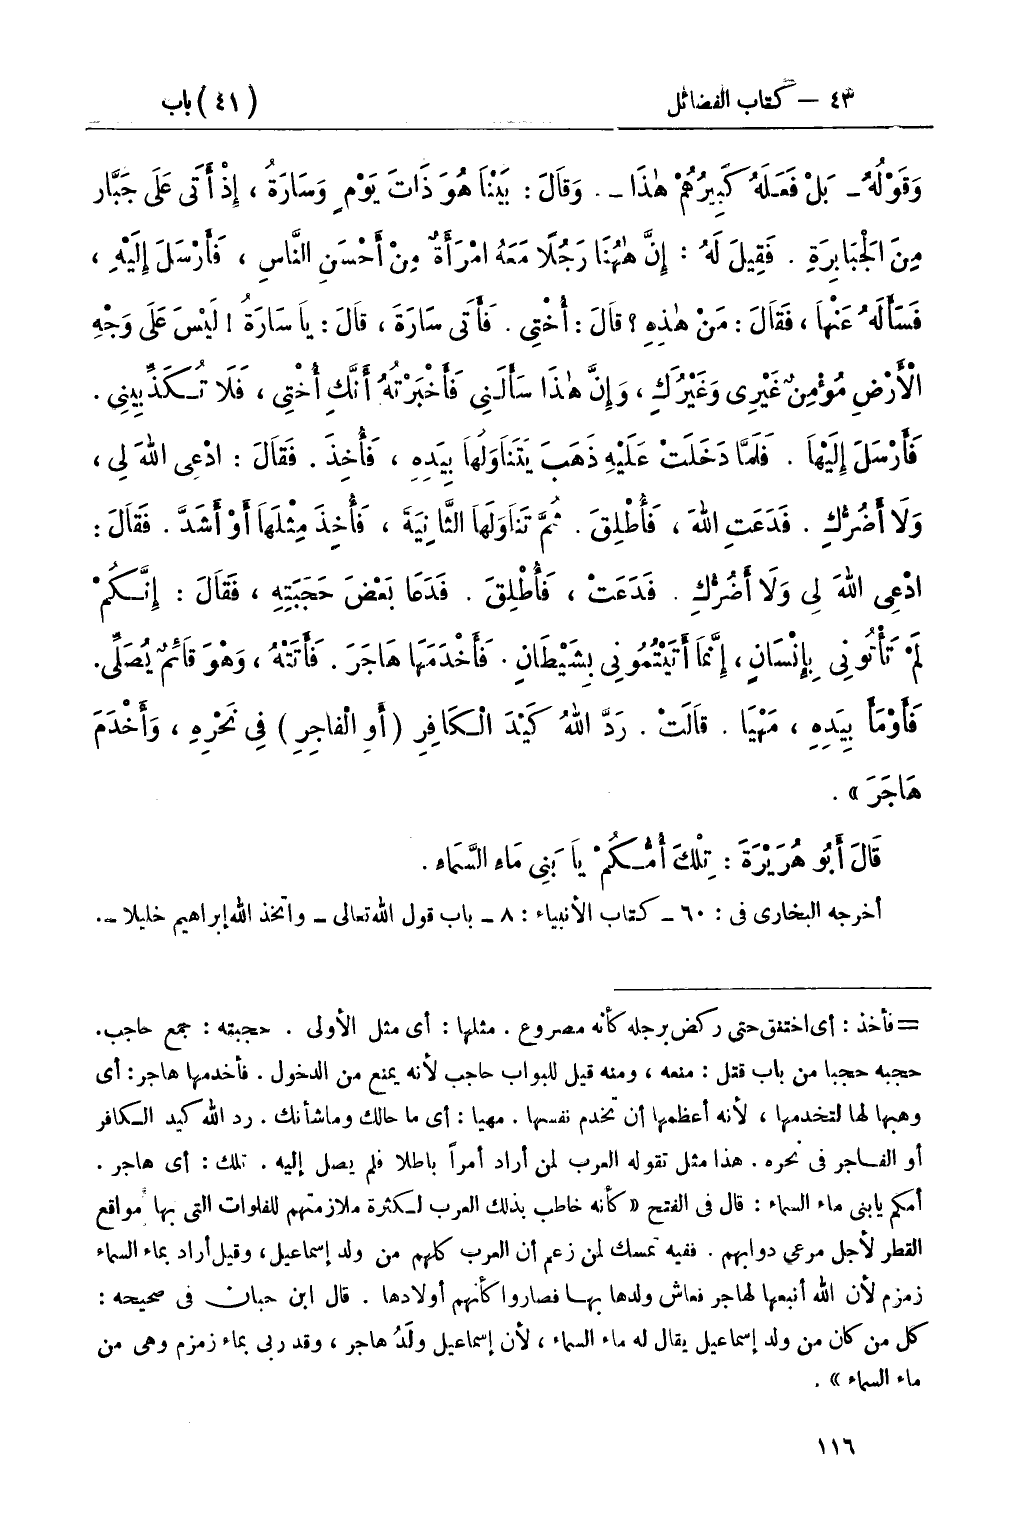 ٤٣ — كتاب الفضائل (٤١) باب
وَقَوْلُهُ ـ بَلْ فَعَلَهُ كَبِيرُهُمْ هٰذَا ـ . وَقَالَ : بَيْنَا هُوَ ذَاتَ يَوْمٍ وَسَارَةُ ، إِذْ أَتَى عَلَى جَبَّارٍ
مِنَ الْجَبَابِرَةِ . فَقِيلَ لَهُ : إِنَّ هٰهُنَا رَجُلًا مَعَهُ امْرَأَةٌ مِنْ أَحْسَنِ النَّاسِ ، فَأَرْسَلَ إِلَيْهِ ،
فَسَأَلَهُ عَنْهَا ، فَقَالَ : مَنْ هٰذِهِ ؟ قَالَ : أُخْتِي . فَأَتَى سَارَةَ ، قَالَ : يَا سَارَةُ ! لَيْسَ عَلَى وَجْهِ
الْأَرْضِ مُؤْمِنٌ غَيْرِى وَغَيْرُكِ ، وَإِنَّ هٰذَا سَأَلَنِي فَأَخْبَرْتُهُ أَنَّكِ أُخْتِي ، فَلَا تُكَذِّبِينِي .
فَأَرْسَلَ إِلَيْهَا . فَلَمَّا دَخَلَتْ عَلَيْهِ ذَهَبَ يَتَنَاوَلُهَا بِيَدِهِ ، فَأُخِذَ . فَقَالَ : ادْعِى اللهَ لِي ،
وَلَا أَضُرُّكِ . فَدَعَتِ اللهَ ، فَأُطْلِقَ . ثُمَّ تَنَاوَلَهَا الثَّانِيَةَ ، فَأُخِذَ مِثْلَهَا أَوْ أَشَدَّ . فَقَالَ :
ادْعِى اللهَ لِي وَلَا أَضُرُّكِ . فَدَعَتْ ، فَأُطْلِقَ . فَدَعَا بَعْضَ حَجَبَتِهِ ، فَقَالَ : إِنَّكُمْ
لَمْ تَأْتُونِي بِإِنْسَانٍ ، إِنَّمَا أَتَيْتُمُونِي بِشَيْطَانٍ . فَأَخْدَمَهَا هَاجَرَ . فَأَتَتْهُ ، وَهْوَ قَائِمٌ يُصَلِّي.
فَأَوْمَأَ بِيَدِهِ ، مَهْيَا . قَالَتْ . رَدَّ اللهُ كَيْدَ الْكَافِرِ (أَوِ الْفَاجِرِ) فِي نَحْرِهِ ، وَأَخْدَمَ
هَاجَرَ » .
قَالَ أَبُو هُرَيْرَةَ : تِلْكَ أُمُّكُمْ يَا بَنِي مَاءِ السَّمَاءِ .
أخرجه البخارى فى : ٦٠ ـ كتاب الأنبياء : ٨ ـ باب قول الله تعالى ـ واتخذ الله إبراهيم خليلا ـ.
= فأخذ : أى اختنق حتى ركض برجله كأنه مصروع . مثلها : أى مثل الأولى . حجبته : جمع حاجب.
حجبه حجبا من باب قتل : منعه ، ومنه قيل للبواب حاجب لأنه يمنع من الدخول . فأخدمها هاجر : أى
وهبها لها لتخدمها ، لأنه أعظمها أن تخدم نفسها . مهيا : أى ما حالك وما شأنك . رد الله كيد الكافر
أو الفاجر فى نحره . هذا مثل تقوله العرب لمن أراد أمراً باطلا فلم يصل إليه . تلك : أى هاجر .
أمكم يابنى ماء السماء : قال فى الفتح « كأنه خاطب بذلك العرب لكثرة ملازمتهم للفلوات التى بها مواقع
القطر لأجل مرعى دوابهم . ففيه تمسك لمن زعم أن العرب كلهم من ولد إسماعيل ، وقيل أراد بماء السماء
زمزم لأن الله أنبعها لهاجر فعاش ولدها بها فصاروا كأنهم أولادها . قال ابن حبان فى صحيحه :
كل من كان من ولد إسماعيل يقال له ماء السماء ، لأن إسماعيل ولَدُ هاجر ، وقد ربى بماء زمزم وهى من
ماء السماء » .
١١٦